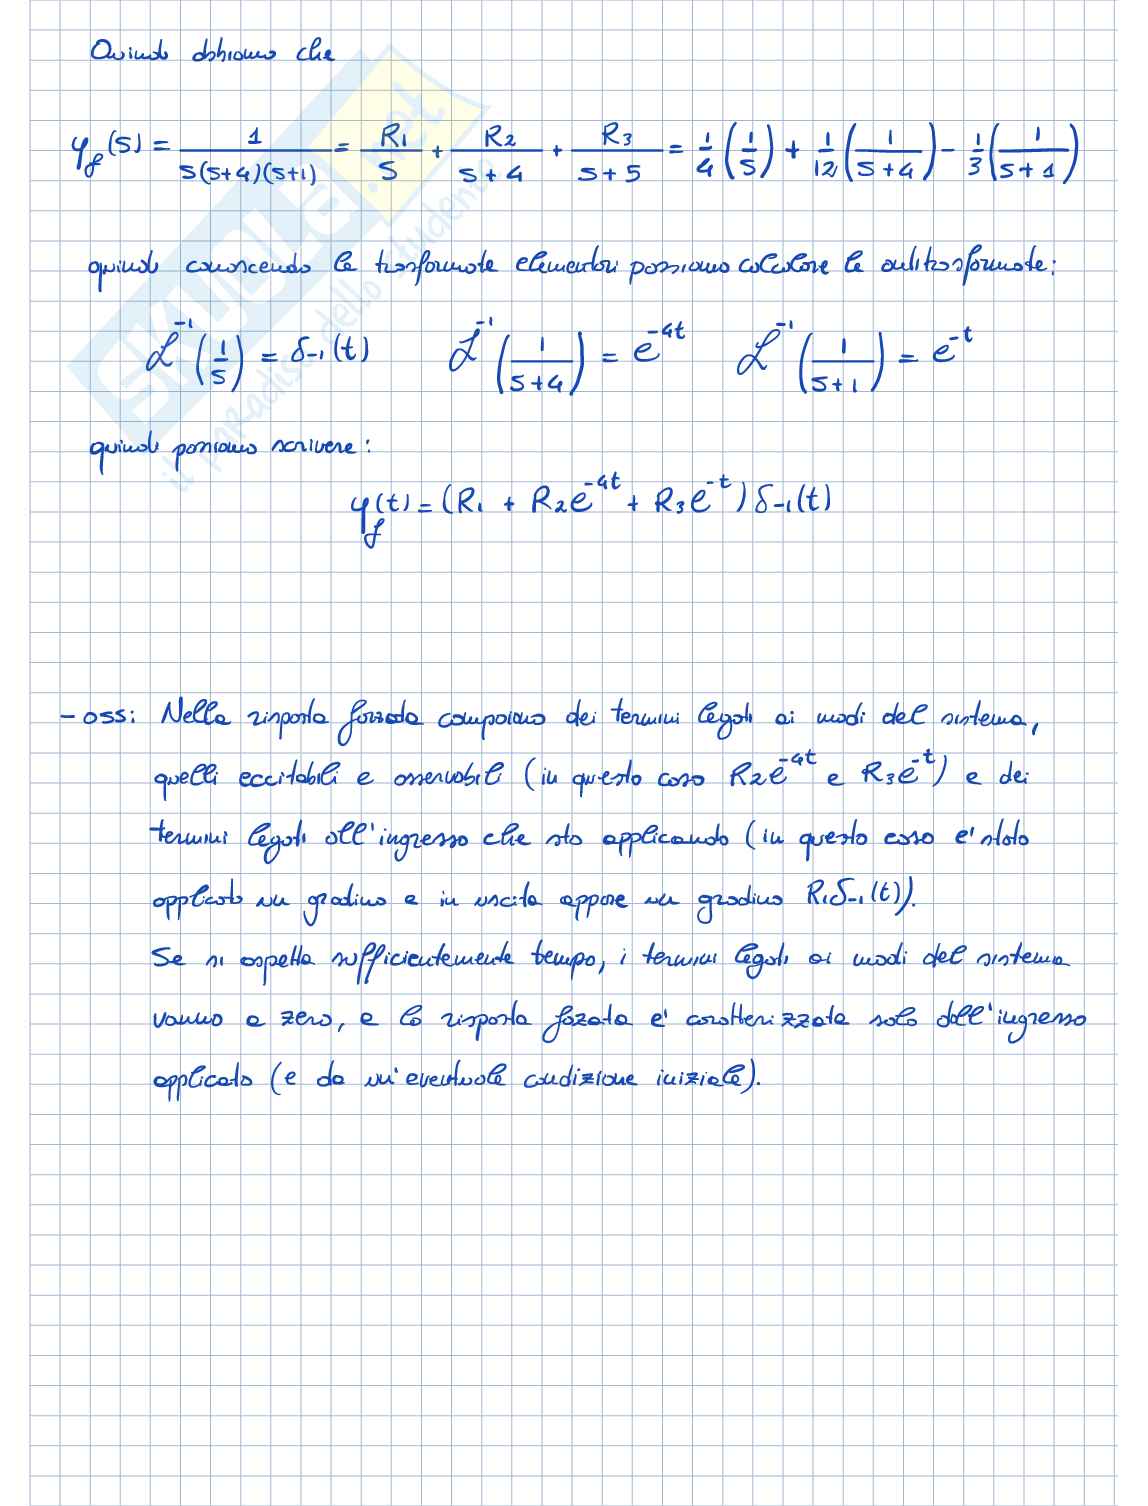 Quindi abbiamo che
y_f(s) = 1/(s(s+4)(s+1)) = R1/s + R2/(s+4) + R3/(s+5) = 1/4 (1/s) + 1/12 (1/(s+4)) - 1/3 (1/(s+1))
quindi conoscendo le trasformate elementari possiamo calcolare le antitrasformate:
L^-1(1/s) = δ-1(t) L^-1(1/(s+4)) = e^-4t L^-1(1/(s+1)) = e^-t
quindi possiamo scrivere:
y_f(t) = (R1 + R2e^-4t + R3e^-t) δ-1(t)
- oss: Nella risposta forzata compaiono dei termini legati ai modi del sistema,
quelli eccitabili e osservabili (in questo caso R2e^-4t e R3e^-t) e dei
termini legati all'ingresso che sto applicando (in questo caso e' stato
applicato un gradino e in uscita appare un gradino R1δ-1(t)).
Se si aspetta sufficientemente tempo, i termini legati ai modi del sistema
vanno a zero, e la risposta fozata e' caratterizzata solo dall'ingresso
applicato (e da un'eventuale condizione iniziale).
SKUOLA.net
il paradiso dello studente